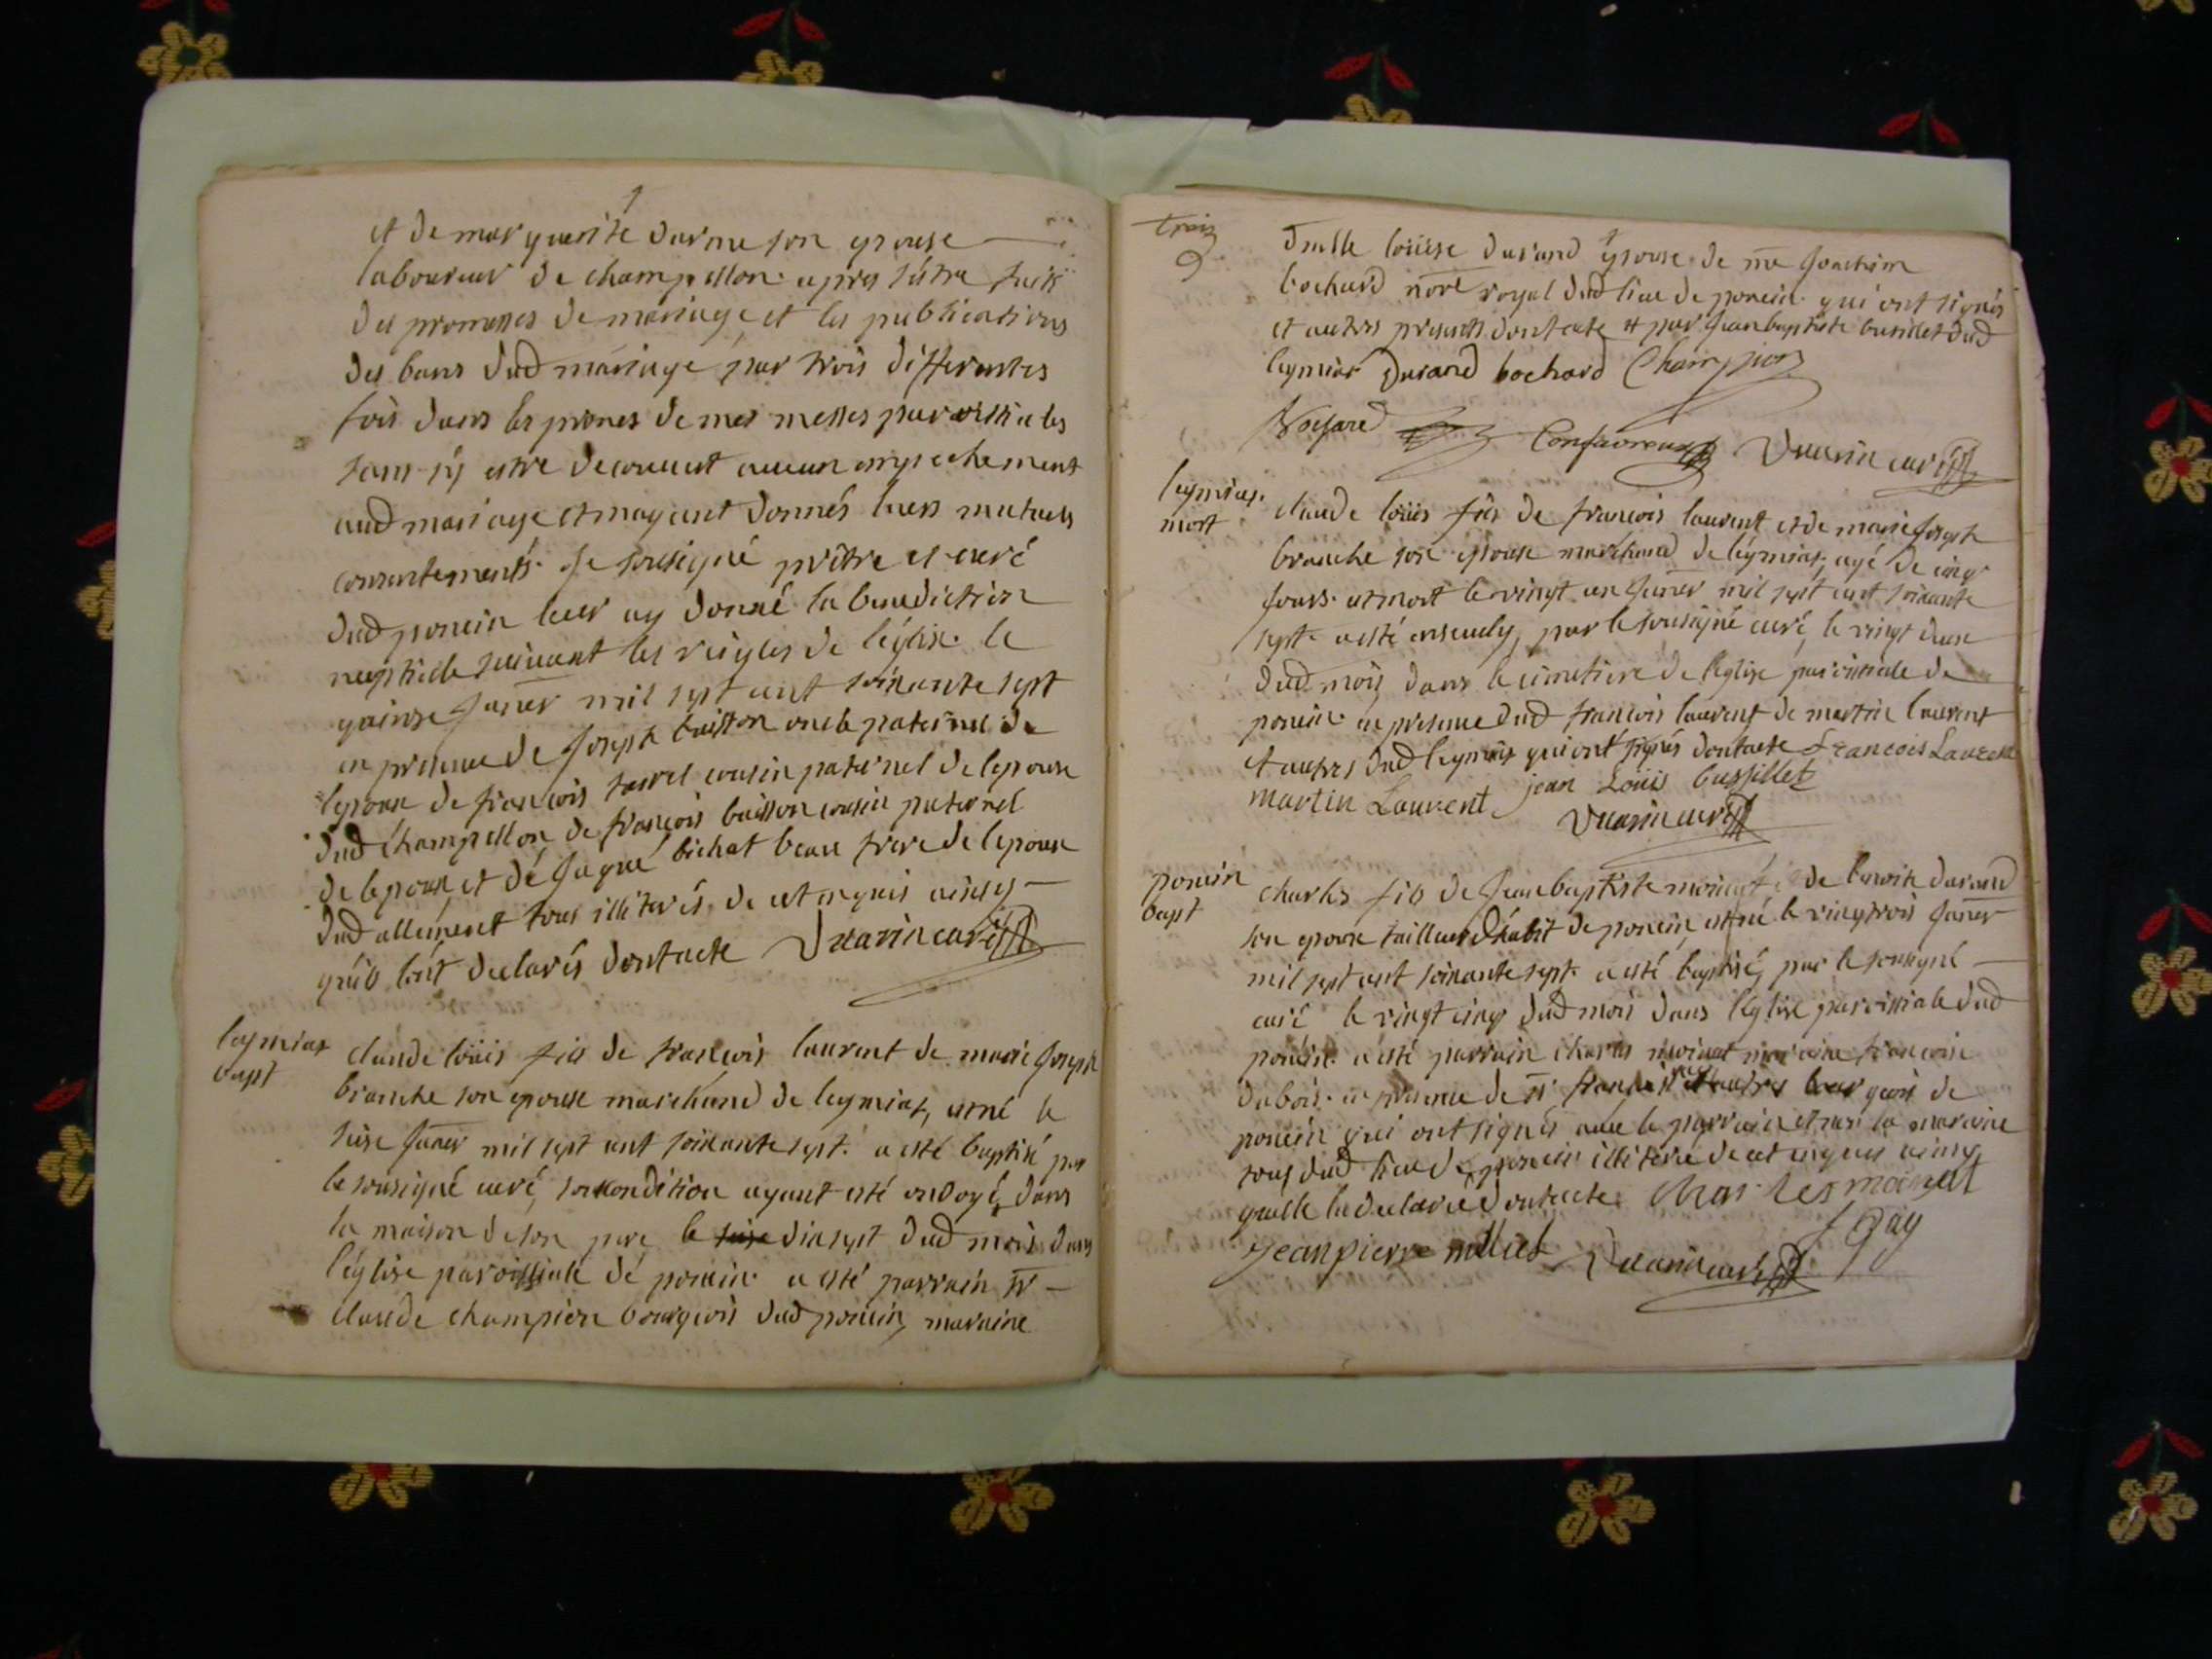 et de marguerite darme son epouse
laboureur de champollon apres s'estre faits
des promesses de mariage et les publications
des bans dud mariage par trois differentes
fois dans les prones de mes messes paroissiales
sans s'y estre decouvert aucun empechement
aud mariage et mayant donnés leurs mutuels
consentements je sousigné prêtre et curé
dud poncin leur ay donné la benediction
nuptiale suivant les reigles de léglise le
quinse janer mil sept cent soixante sept
en presence de joseph buisson oncle paternel de
lepoux de francois cousin paternel de lepouse
dud champollon de francois buisson cousin paternel
de lepoux et de jaque bichat beau frere de lepoux
dud allement tous illiterés de cet enquis ainsy
quils lont declarés dontacte Duarin curé
leymiat
bapt
claude loüis fils de francois laurent de marie joseph
branche son epouse marchand de leymiat, est né le
seise janer mil sept cent soixante sept a esté baptisé par
le sousigné curé, soucondition ayant esté ondoyé, dans
la maison de son pere le seise dixsept dud mois dans
léglise paroissiale de poncin a esté parrain sr
claude champion bourgeois dud poncin, maraine
trois
dmlle loüise durand epouse de me joachim
bochard nore royal dud lieu de poncin qui ont signés
et autres presents dontacte et par jean baptiste bussilet dud
leymiat Durand bochard Champion
Confavreux Duarin curé
leymiat
mort
claude loüis fils de francois laurent et de marie joseph
branche son epouse marchand de leymiat, agé de cinq
jours est mort le vingt un janer mil sept cent soixante
sept a esté ensevely, par le sousigné curé, le vingt deux
dud mois dans le cimetiere de l'eglise paroissiale de
poncin en presence dud francois laurent de martin laurent
et autres dud leymiat qui ont signés dontacte Francois Laurent
martin Laurent jean Louis bussillet
Duarin curé
poncin
bapt
charles fils de jean baptiste moinat de benoite durand
son epouse tailleur d'habit de poncin est né le vingtrois janer
mil sept cent soixante sept a esté baptisé, par le sousigné
curé le vingt cinq dud mois dans léglise paroissiale dud
poncin a esté parrain charles moinat maraine francoise
dubois en presence de sr et autres bourgeois de
poncin qui ont signés avec le parrain et non la maraine
tous dud lieu de poncin illiterée de cet enquis ainsy
quelle la declarée dontacte charles moinat
jeanpierre milliet Duarin curé J Guy